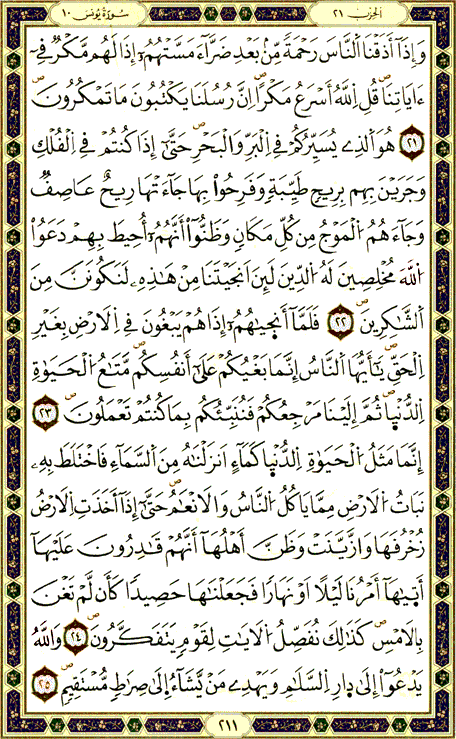 الحزب ٢١
سورة يونس ١٠
وَإِذَآ أَذَقْنَا اَلنَّاسَ رَحْمَةٗ مِّنۢ بَعْدِ ضَرَّآءَ مَسَّتْهُمُۥٓ إِذَا لَهُم مَّكْرٞ فِےٓ
ءَايَاتِنَاۖ قُلِ اِللَّهُ أَسْرَعُ مَكْراًۖ اِنَّ رُسُلَنَا يَكْتُبُونَ مَا تَمْكُرُونَۖ
٢١ هُوَ اَلذِے يُسَيِّرُكُمْ فِے اِلْبَرِّ وَالْبَحْرِۖ حَتَّىٰٓ إِذَا كُنتُمْ فِے اِلْفُلْكِ
وَجَرَيْنَ بِهِم بِرِيحٖ طَيِّبَةٖ وَفَرِحُواْ بِهَا جَآءَتْهَا رِيحٌ عَاصِفٞ
وَجَآءَهُمُ اُلْمَوْجُ مِن كُلِّ مَكَانٖ وَظَنُّوٓاْ أَنَّهُمُۥٓ أُحِيطَ بِهِمْ دَعَوُاْ
اُللَّهَ مُخْلِصِينَ لَهُ اُلدِّينَ لَئِنَ اَنجَيْتَنَا مِنْ هَٰذِهِۦ لَنَكُونَنَّ مِنَ
اَلشَّٰكِرِينَۖ ٢٢ فَلَمَّآ أَنجَيٰهُمُۥٓ إِذَا هُمْ يَبْغُونَ فِے اِلَارْضِ بِغَيْرِ
اِلْحَقِّۖ يَٰٓأَيُّهَا اَلنَّاسُ إِنَّمَا بَغْيُكُمْ عَلَىٰٓ أَنفُسِكُمۖ مَّتَٰعُ اُلْحَيَوٰةِ
اِلدُّنْيٜاۖ ثُمَّ إِلَيْنَا مَرْجِعُكُمْ فَنُنَبِّئُكُم بِمَا كُنتُمْ تَعْمَلُونَۖ ٢٣
إِنَّمَا مَثَلُ اُلْحَيَوٰةِ اِلدُّنْيٜا كَمَآءٍ اَنزَلْنَٰهُ مِنَ اَلسَّمَآءِ فَاخْتَلَطَ بِهِۦ
نَبَاتُ اُلَارْضِ مِمَّا يَاكُلُ اُلنَّاسُ وَالَانْعَٰمُ حَتَّىٰٓ إِذَآ أَخَذَتِ اِلَارْضُ
زُخْرُفَهَا وَازَّيَّنَتْ وَظَنَّ أَهْلُهَآ أَنَّهُمْ قَٰدِرُونَ عَلَيْهَآ
أَتٜيٰهَآ أَمْرُنَا لَيْلاً اَوْ نَهَاراٗ فَجَعَلْنَٰهَا حَصِيداٗ كَأَن لَّمْ تَغْنَ
بِالَامْسِۖ كَذَٰلِكَ نُفَصِّلُ اُلَايَٰتِ لِقَوْمٖ يَتَفَكَّرُونَۖ ٢٤ وَاللَّهُ
يَدْعُوٓاْ إِلَىٰ دٜارِ اِلسَّلَٰمِ وَيَهْدِے مَنْ يَّشَآءُ اِلَىٰ صِرَٰطٖ مُّسْتَقِيمٖۖ ٢٥
٢١١